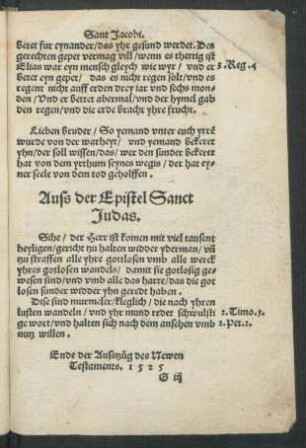 Sant Jacobi.
betet fur eynander/das yhr gesund werdet. Des
gerechten gepet vermag vill/wenn es thettig ist
Elias war eyn mensch gleych wie wyr/vnd er 3. Reg. 5
betet eyn gepet/ das es nicht regen solt/vnd es
regent nicht auff erden drey iar vnd sechs mon-
den/Vnd er bettet abermal/vnd der hymel gab
den regen/vnd die erde bracht yhr frucht.
Lieben bruder/ So yemand vnter euch yrre
wurde von der warheyt/ vnd yemand bekeret
yhn/der soll wissen/das/wer den sunder bekeret
hat von dem yrthum seynes wegis/der hat ey-
ner seele von dem tod geholffen.
Auss der Epistel Sanct
Judas.
Sihe/ der Herr ist komen mit viel tausent
heyligen/gericht zu halten widder yderman/vn̄
zu straffen alle yhre gottlosen vmb alle werck
yhres gotlosen wandels/ damit sie gotlosig ge-
wesen sind/vnd vmb alle das harte/das die got
losen sunder widder yhn geredt haben.
Dise sind murmeler/kleglich/die nach yhren
lusten wandeln/vnd yhr mund redet schwulsti 2. Timo. 3.
ge wort/vnd halten sich nach dem ansehen vmb 2. Pet. 2.
nutz willen.
Ende der Ausszüg des Newen
Testaments. 1525
G iij